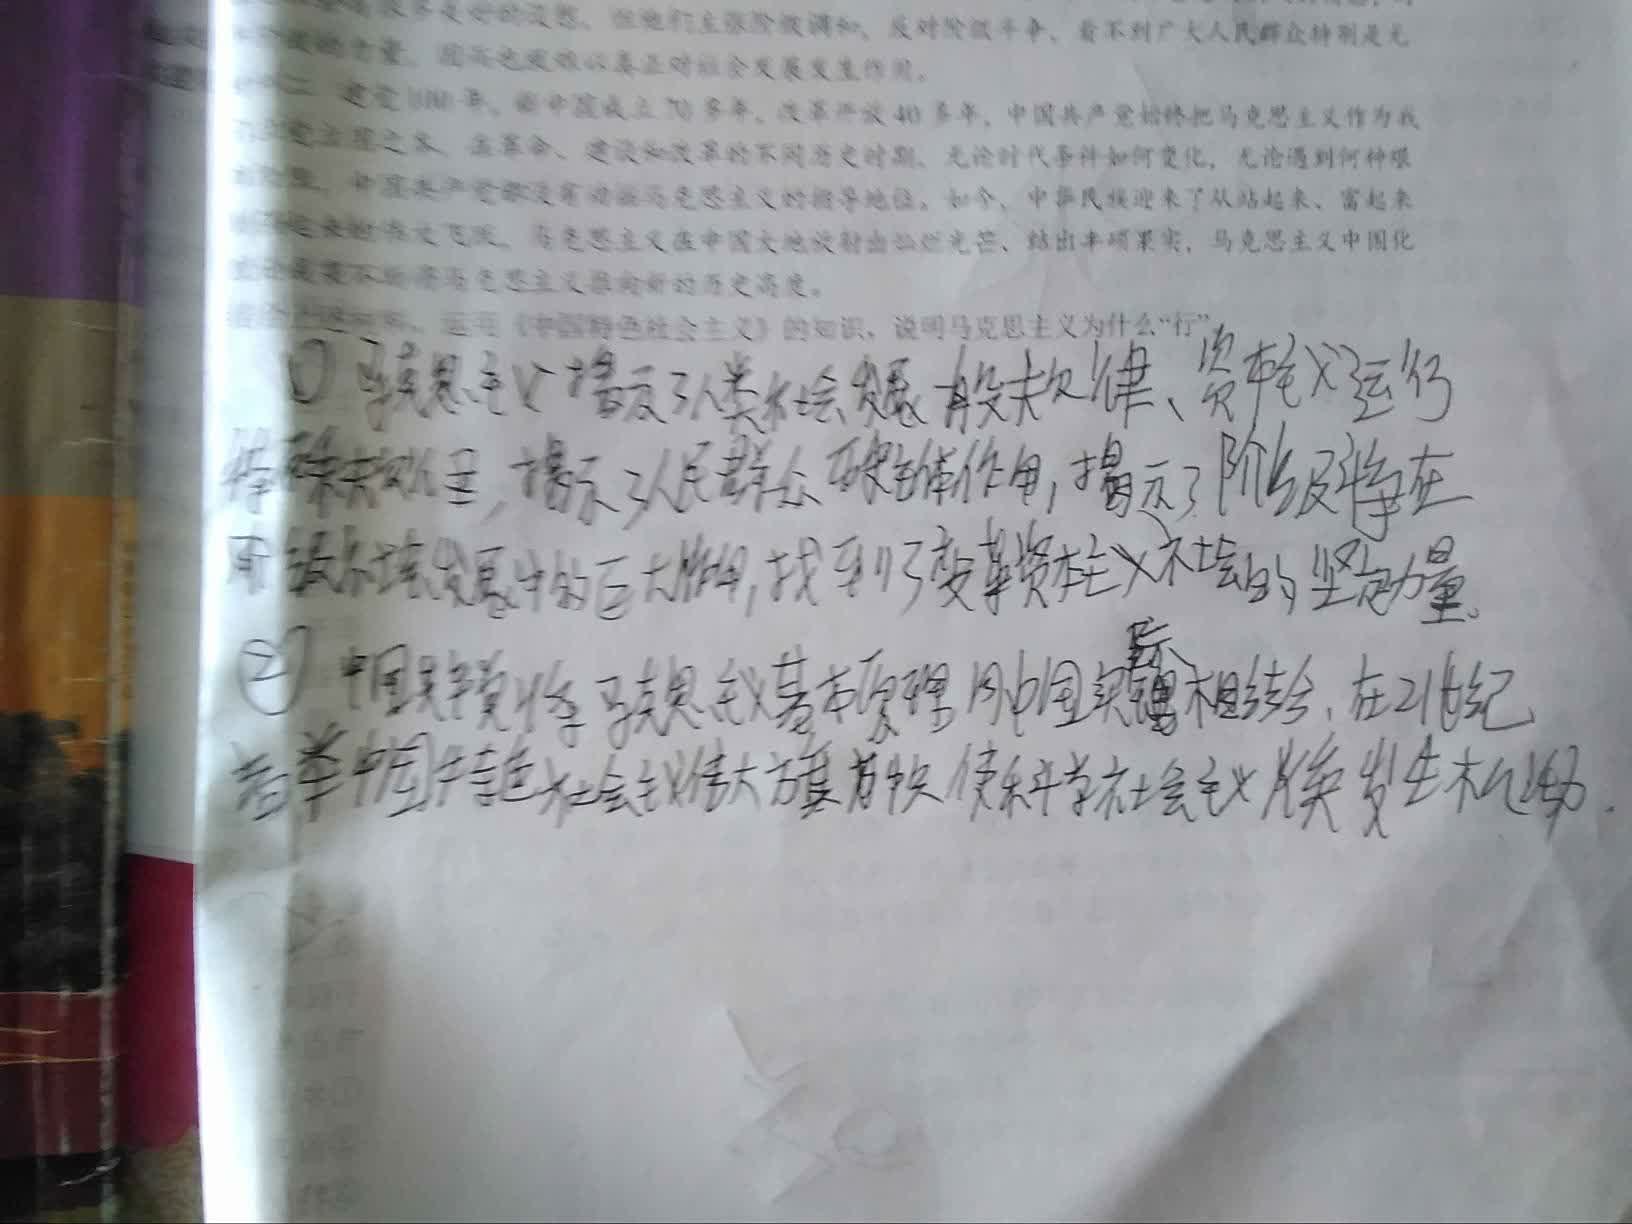 很多美好的设想。但他们主张阶级调和，反对阶级斗争，看不到广大人民群众特别是无
的力量，因而也很难以真正对社会发展发生作用。
二 建党100年，新中国成立70多年，改革开放40多年，中国共产党始终把马克思主义作为我
之本。在革命、建设和改革的不同历史时期，无论时代条件如何变化，无论遇到何种艰
中国共产党都没有动摇马克思主义的指导地位。如今，中华民族迎来了从站起来、富起来
起来的伟大飞跃，马克思主义在中国大地放射出灿烂光芒、结出丰硕果实，马克思主义中国化
不断将马克思主义推向新的历史高度。
结合上述材料，运用《中国特色社会主义》的知识，说明马克思主义为什么“行”
① 马克思主义揭示了人类社会发展一般规律、资本主义运行
特殊规律，揭示了人民群众历史主体作用，揭示了阶级斗争在
阶级社会发展中的巨大作用，找到了变革资本主义社会的坚定力量。
② 中国共产党将马克思主义基本原理同中国实际相结合，在21世纪
高举中国特色社会主义伟大旗帜 使科学社会主义焕发生机活力.